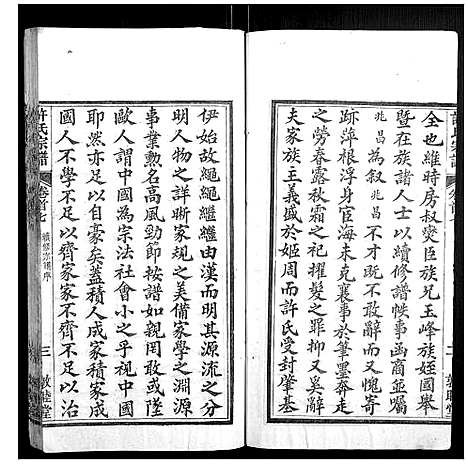 全也維時房叔爕臣族兄玉峰族姪國舉
暨在族諸人士以續修譜帙事函商並囑
兆昌為叙兆昌不才然不敢辭而又愧寄
跡萍根浮身宦海未克襄事於筆墨奔走
之勞春露秋霜之祀擢髮之罪抑又于辭
夫家族主義盛於姬周而許氏受封肇基
伊始故繩繩繼繼由漢而明其源流之分
明人物之詳晰規模之美備家學之淵源
事業勲名高風勁節按譜如親罔敢或墜
歐人謂中國為宗法社會小之乎中國
耶然亦足以自豪矣蓋積人成家積家成
國人不學不足以齊家家不齊不足以言
許氏宗譜 卷首七 續修宗譜序 三 敦睦堂